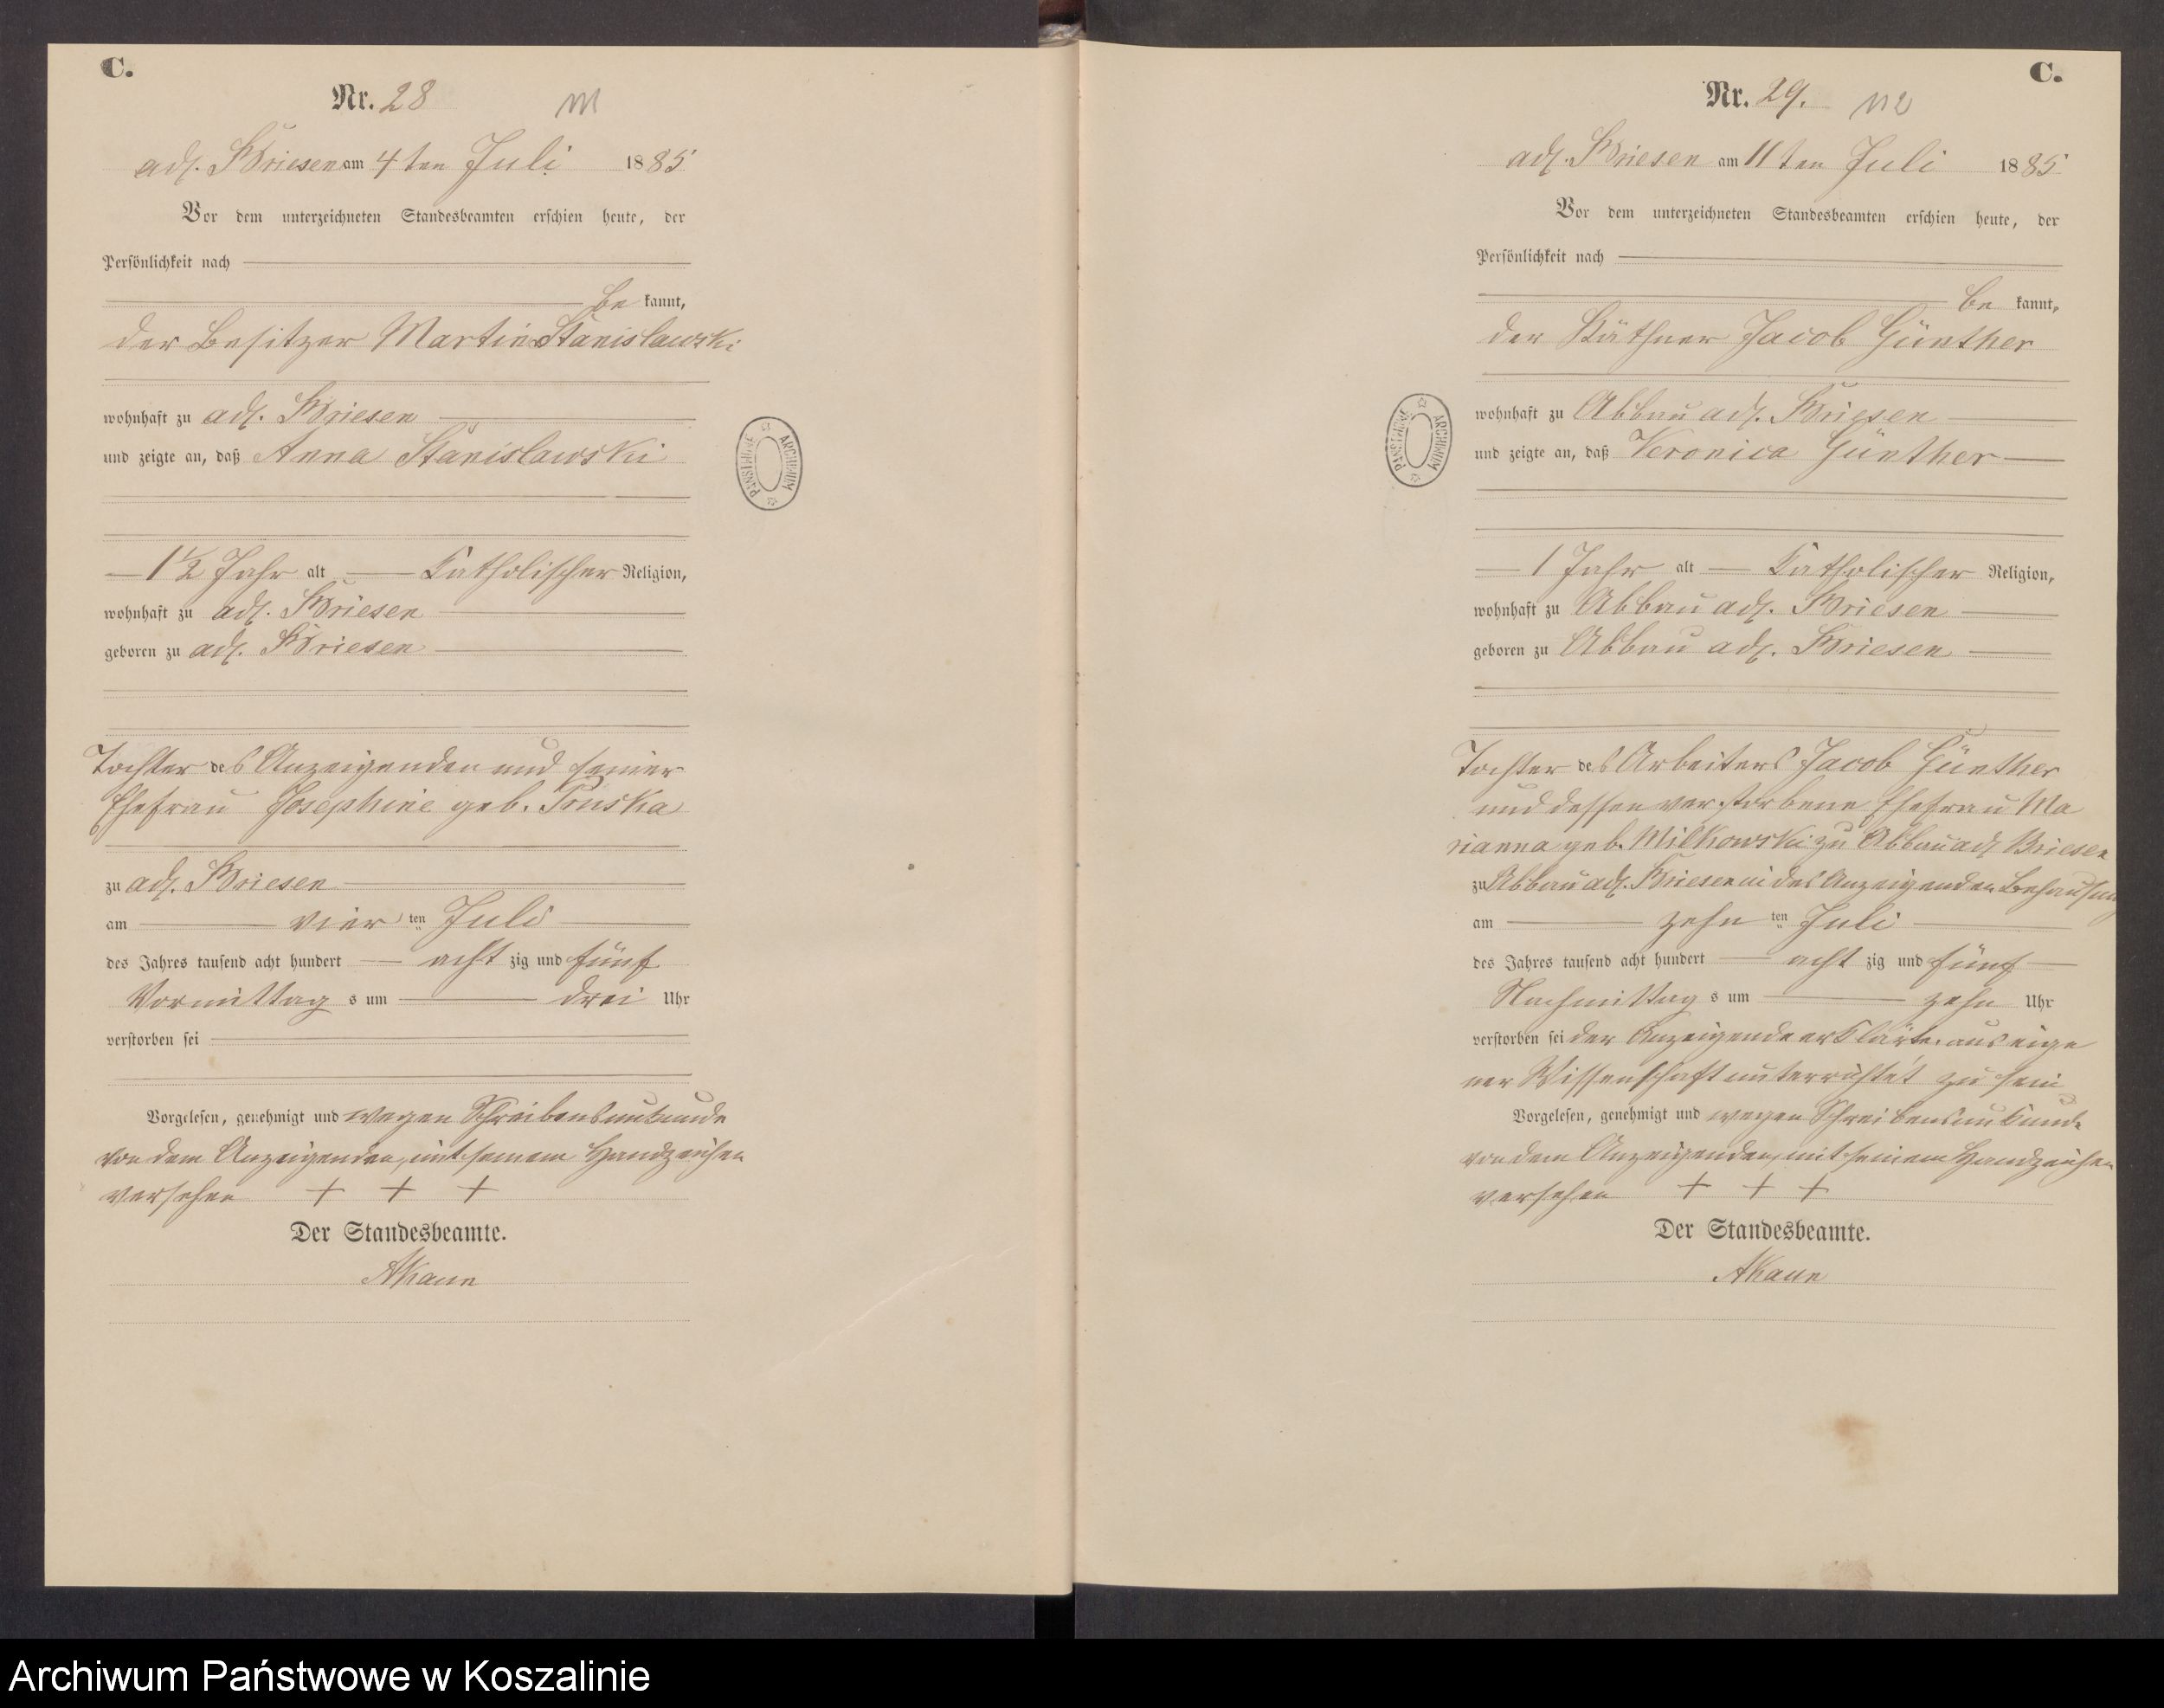 C.
Nr. 28
adl. Briesen am 4 ten Juli 1885
Vor dem unterzeichneten Standesbeamten erschien heute, der
Persönlichkeit nach
be kannt,
der Besitzer Martin Stanislawski
wohnhaft zu adl. Briesen
und zeigte an, daß Anna Stanislawski
1 1/2 Jahr alt Katholischer Religion,
wohnhaft zu adl. Briesen
geboren zu adl. Briesen
Tochter des Anzeigenden und seiner
Ehefrau Josephine geb.
zu adl. Briesen
am vier ten Juli
des Jahres tausend acht hundert acht zig und fünf
Vormittag s um drei Uhr
verstorben sei
Vorgelesen, genehmigt und wegen Schreibensunkunde
von dem Anzeigenden, mit seinem Handzeichen
versehen + + +
Der Standesbeamte.
AKann
ARCHIWUM PAŃSTWOWE
C.
Nr. 29. 112
adl. Briesen am 11 ten Juli 1885
Vor dem unterzeichneten Standesbeamten erschien heute, der
Persönlichkeit nach
be kannt,
der Käthner Jacob Günther
wohnhaft zu Abbau adl. Briesen
und zeigte an, daß Veronica Günther
1 Jahr alt Katholischer Religion,
wohnhaft zu Abbau adl. Briesen
geboren zu Abbau adl. Briesen
Tochter des Arbeiters Jacob Günther
und dessen verstorbene Ehefrau Ma
rianna geb. Milkowski zu Abbau adl Briesen
zu Abbau adl. Briesen in des Anzeigenden Behausung
am zehn ten Juli
des Jahres tausend acht hundert acht zig und fünf
Nachmittag s um zehn Uhr
verstorben sei der Anzeigende erklärte aus eige
ner Wissenschaft unterrichtet zu sein
Vorgelesen, genehmigt und wegen Schreibensunkunde
von dem Anzeigenden, mit seinem Handzeichen
versehen + + +
Der Standesbeamte.
AKann
ARCHIWUM PAŃSTWOWE
Archiwum Państwowe w Koszalinie